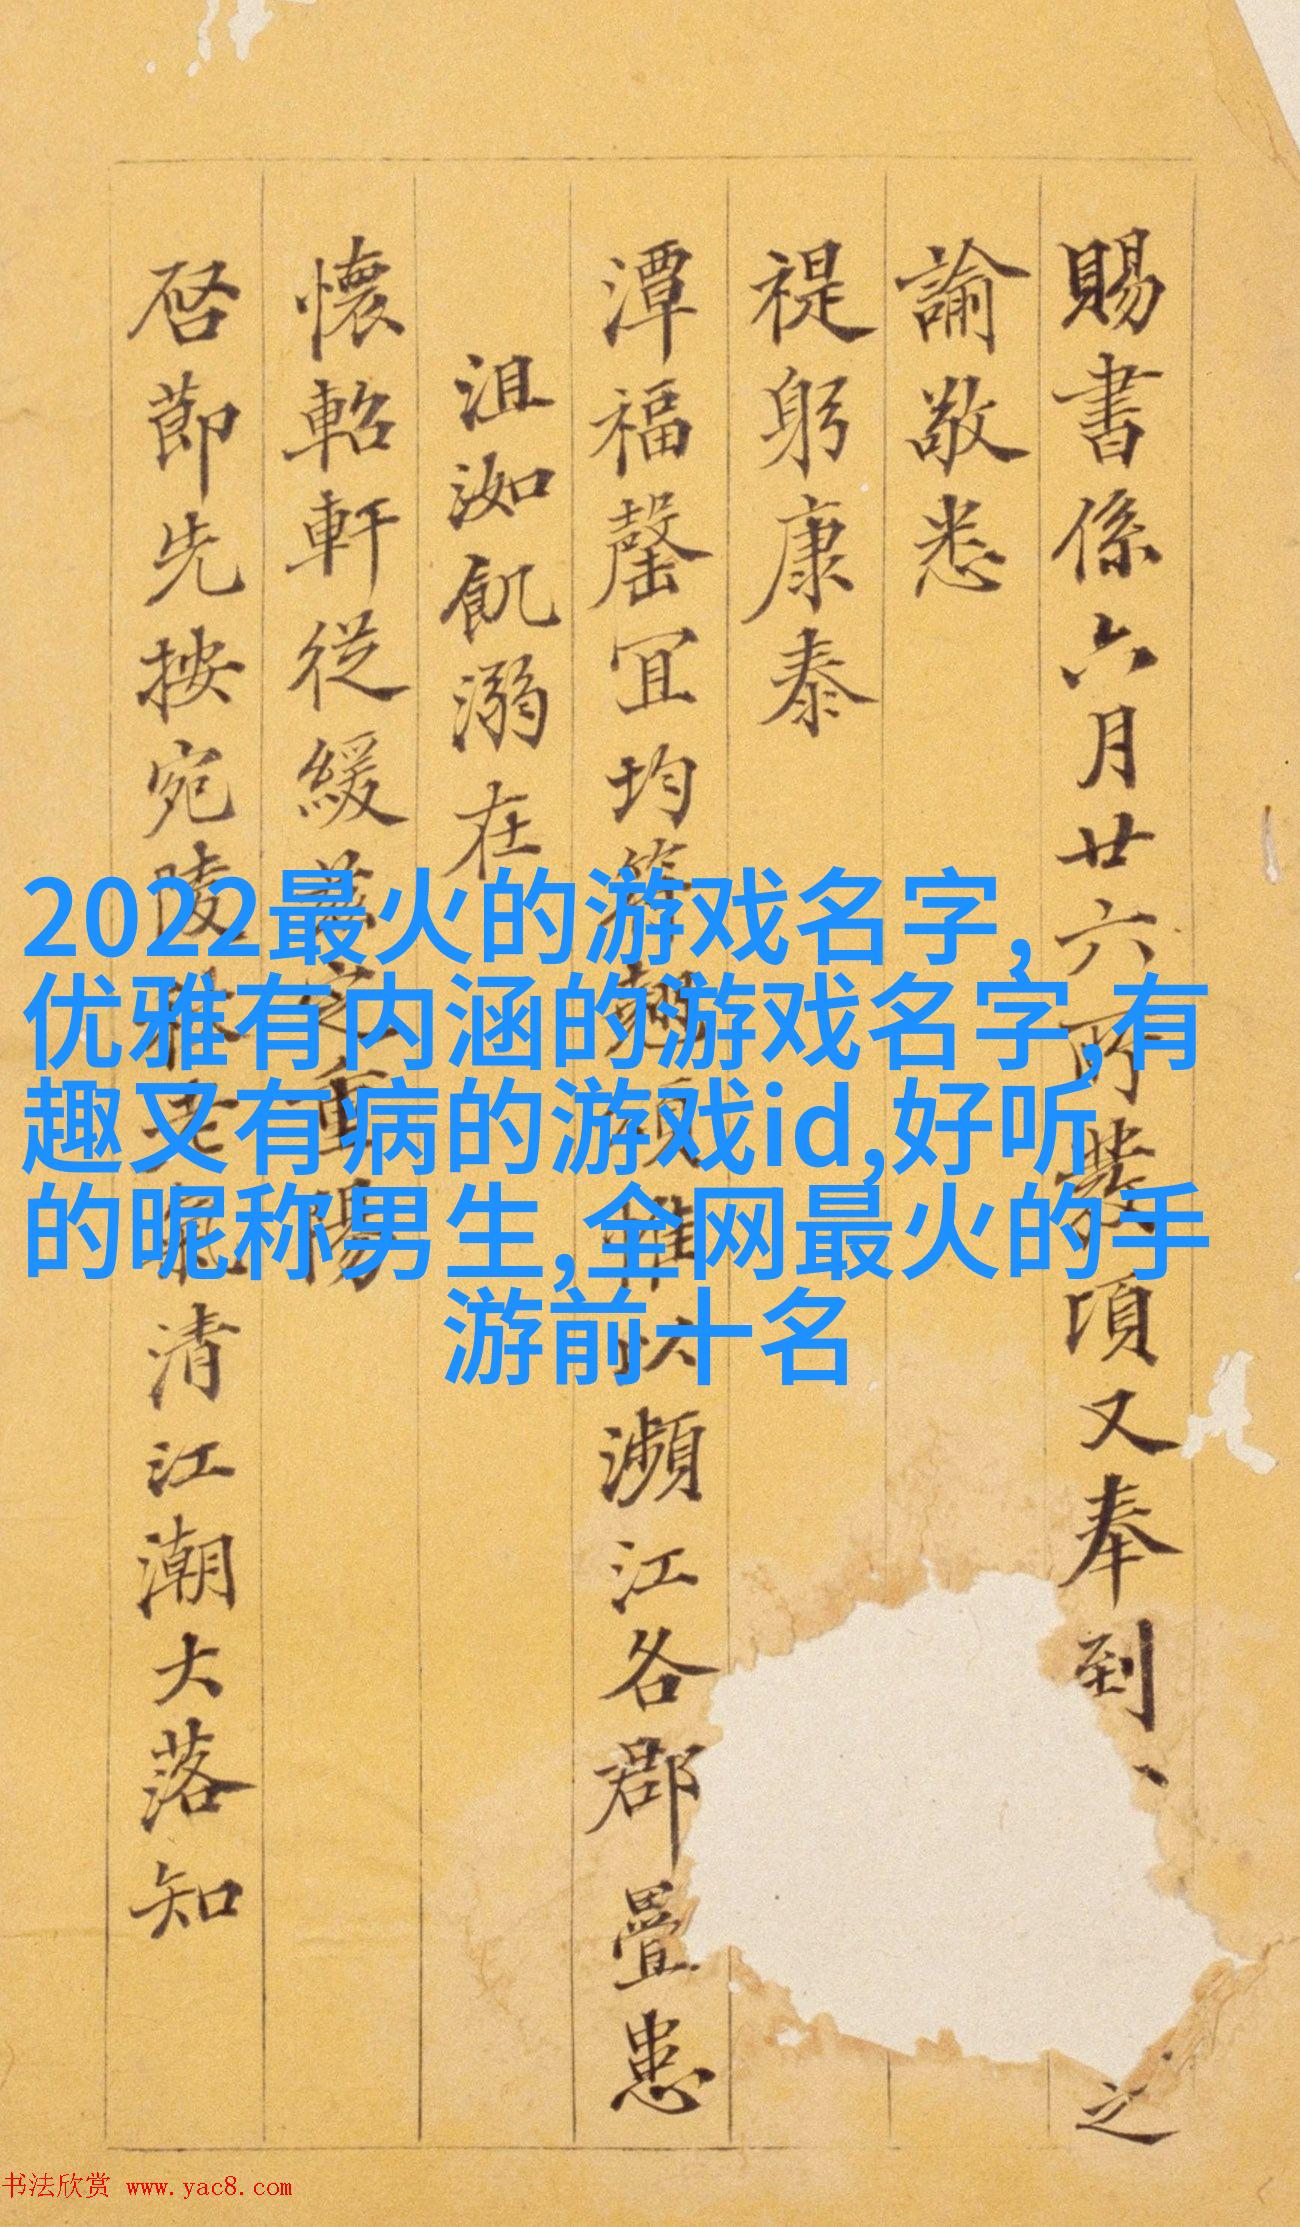 賜書係六月廿六所發頃又奉到、之
諭敬悉
禔躬康泰
潭福罄宜均符頌以瀕江各郡疊患
沮洳飢溺在
懷軺軒從緩之重陽
啓節先按宛陵清江潮大落知
2022最火的游戏名字,
优雅有内涵的游戏名字,有
趣又有病的游戏id,好听
的昵称男生,全网最火的手
游前十名
书法欣赏 www.yac8.com